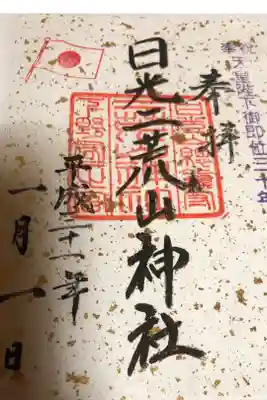 奉祝
天皇陛下御即位三十年
奉拝
日光二荒山神社
平成三十一年
一月一日